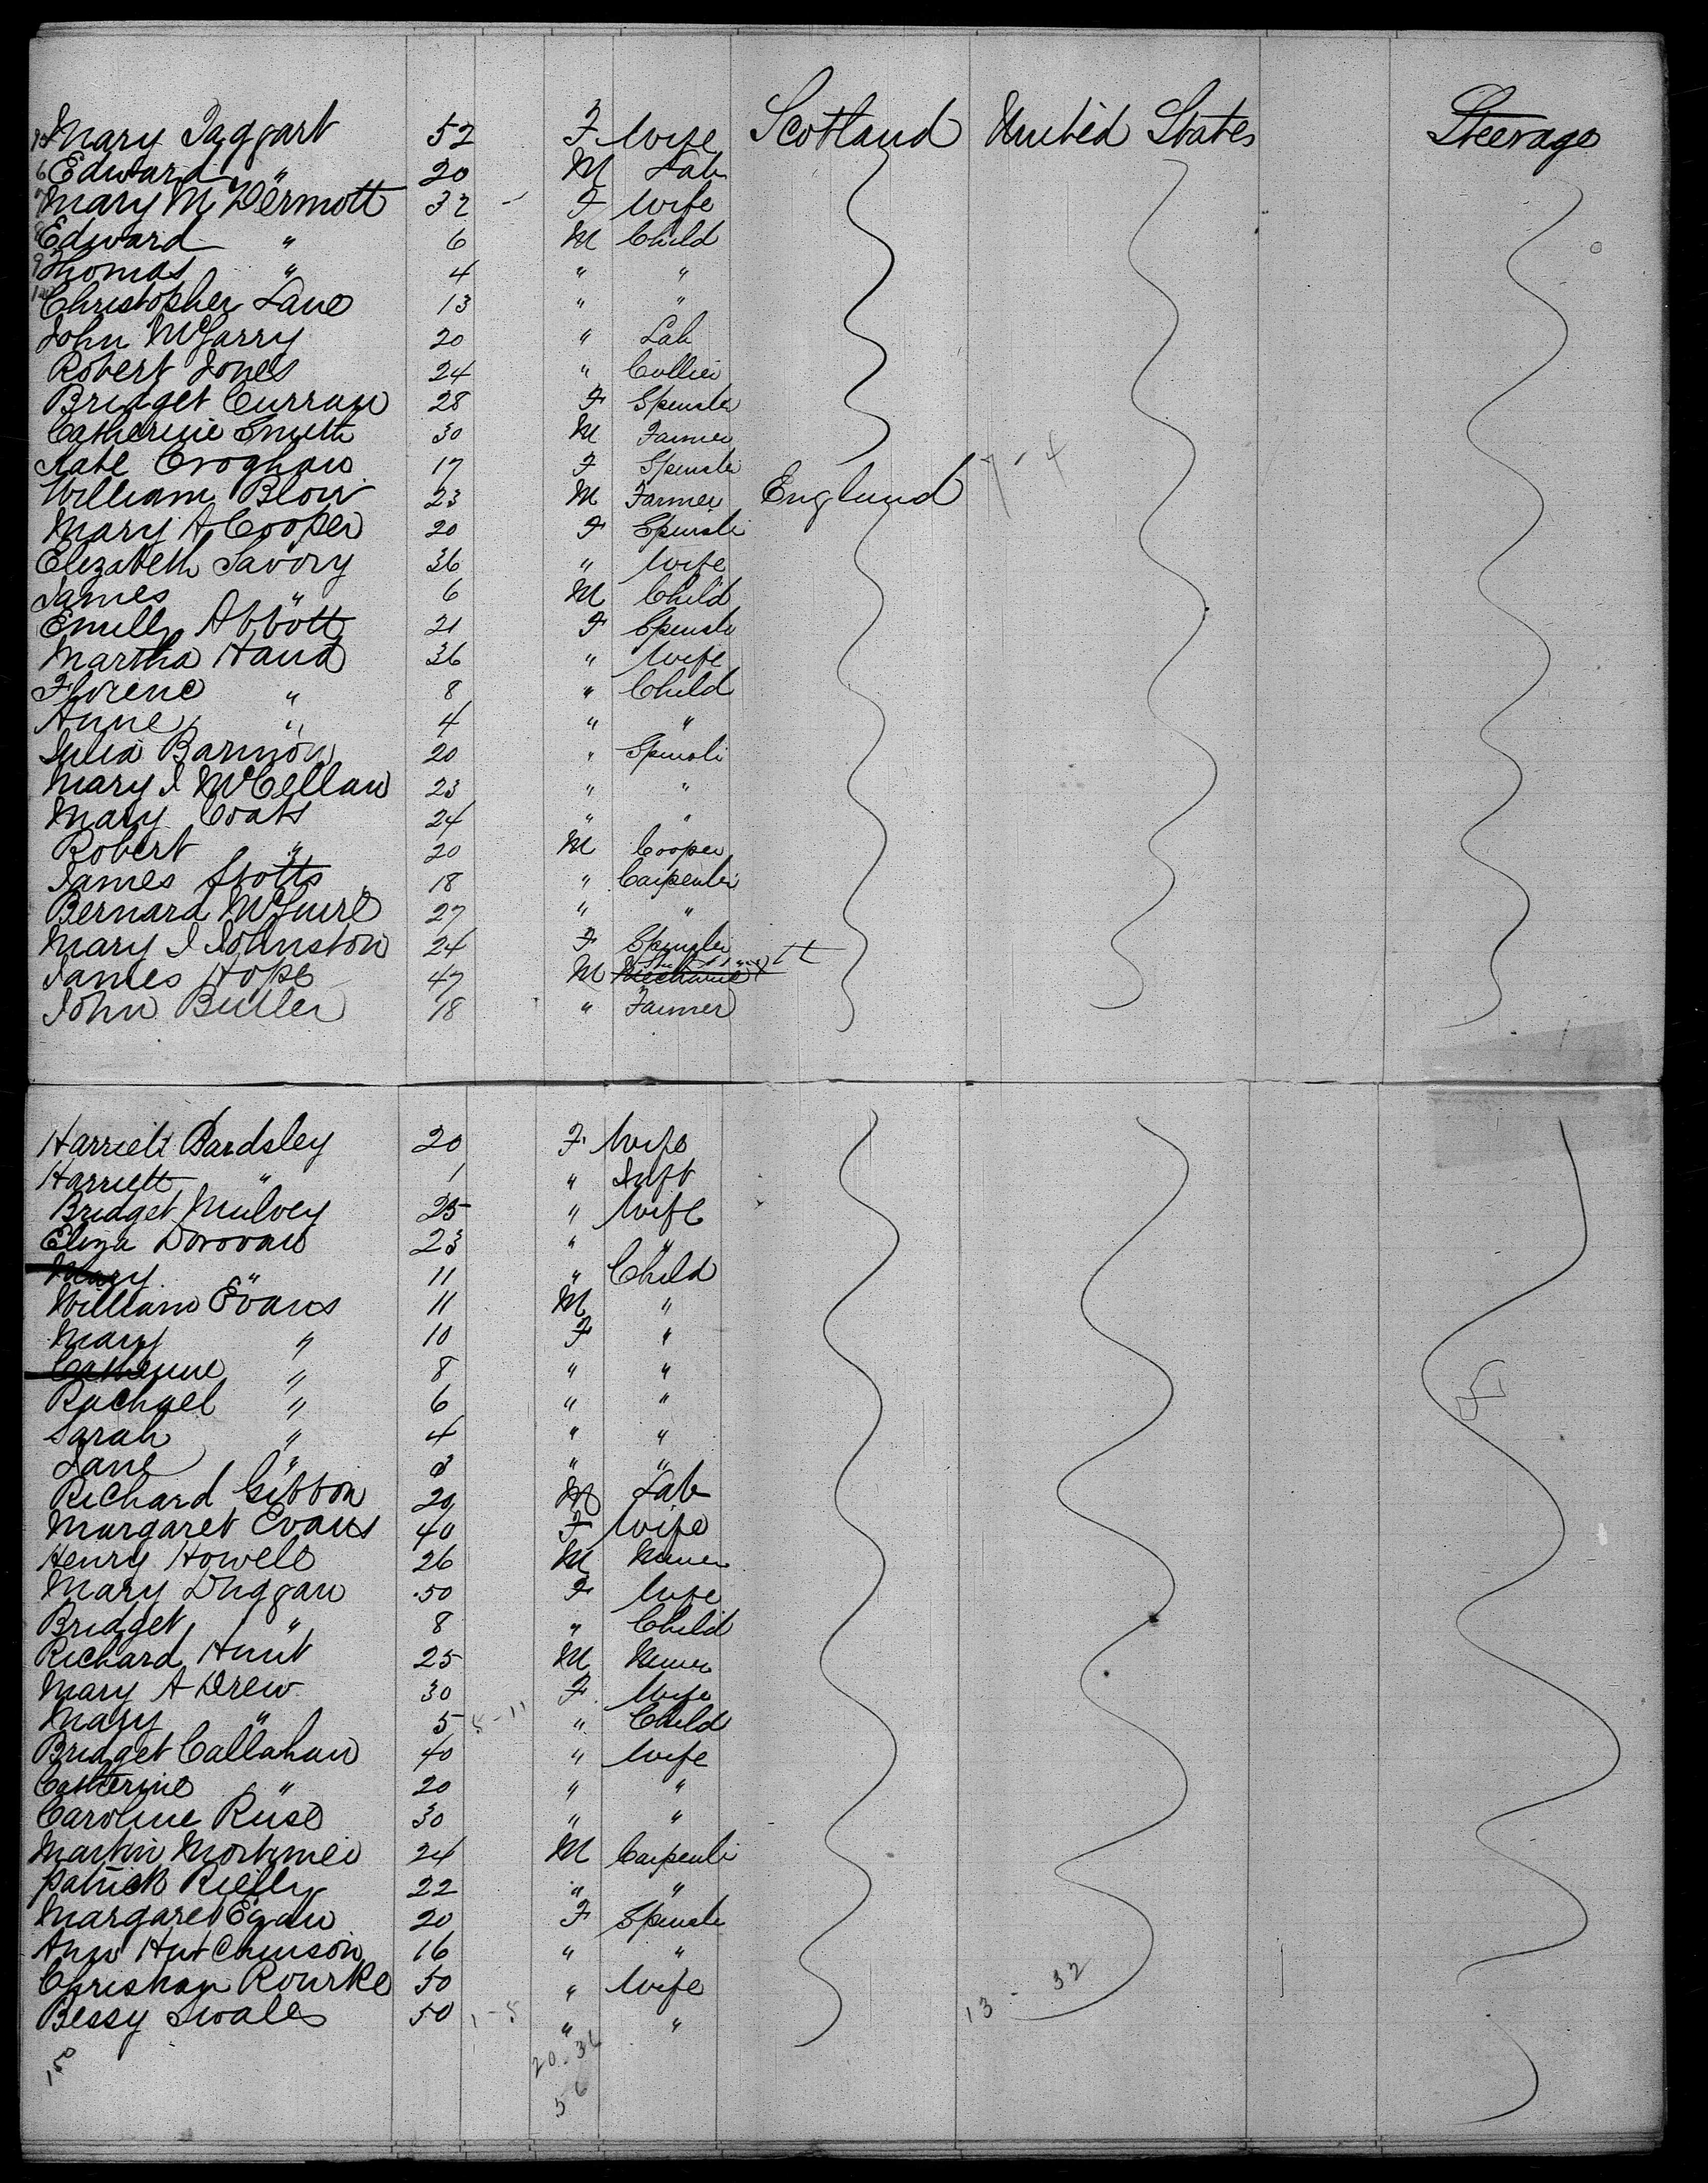 Mary Taggart 52 F Wife Scotland United States Steerage
6 Edward " 20 M Lab
Mary McDermott 32 - F Wife
Edward " 6 M Child
9 Thomas " 4 " "
Christopher Lane 13 " "
John McGarry 20 " Lab
Robert Jones 24 " Collier
Bridget Curran 28 F Spinster
Catherine Smith 30 M Farmer
Kate Croghan 17 F Spinster
William Blow 23 M Farmer England
Mary A Cooper 20 F Spinster
Elizabeth Savory 36 " Wife
James " 6 M Child
Emily Abbott 21 F Spinster
Martha Hand 36 " Wife
Florence " 8 " Child
Anne " 4 " "
Julia 20 " Spinster
Mary J McClellan 23 " "
Mary Coats 24 " "
Robert " 20 M Cooper
James Stotts 18 " Carpenter
Bernard McGuire 27 " "
Mary J Johnston 24 F Spinster
James Hope 47 M
John Butler 18 " Farmer
Harriett Bardsley 20 F Wife
Harriett " 1 " Inft
Bridget Mulvey 25 " Wife
Eliza Donovan 23 " "
Mary " 11 " Child
William Evans 11 M "
Mary " 10 F "
Catherine " 8 " "
Rachael " 6 " "
Sarah " 4 " "
Jane " 3 " "
Richard Gibbon 20 M Lab
Margaret Evans 40 F Wife
Henry Howell 26 M Miner
Mary Duggan 50 F Wife
Bridget " 8 " Child
Richard Hunt 25 M Miner
Mary A Drew 30 F Wife
Mary " 5 " Child
Bridget Callahan 40 " Wife
Catherine " 20 " "
Caroline Ruse 30 " "
Martin Mortimer 24 M Carpenter
Patrick Rielly 22 " "
Margaret Egan 20 F Spinster
Ann Hutchinson 16 " "
Christian Rourke 50 " Wife
Bessy Swales 50 1-5 " "
13 - 32
20.36
56